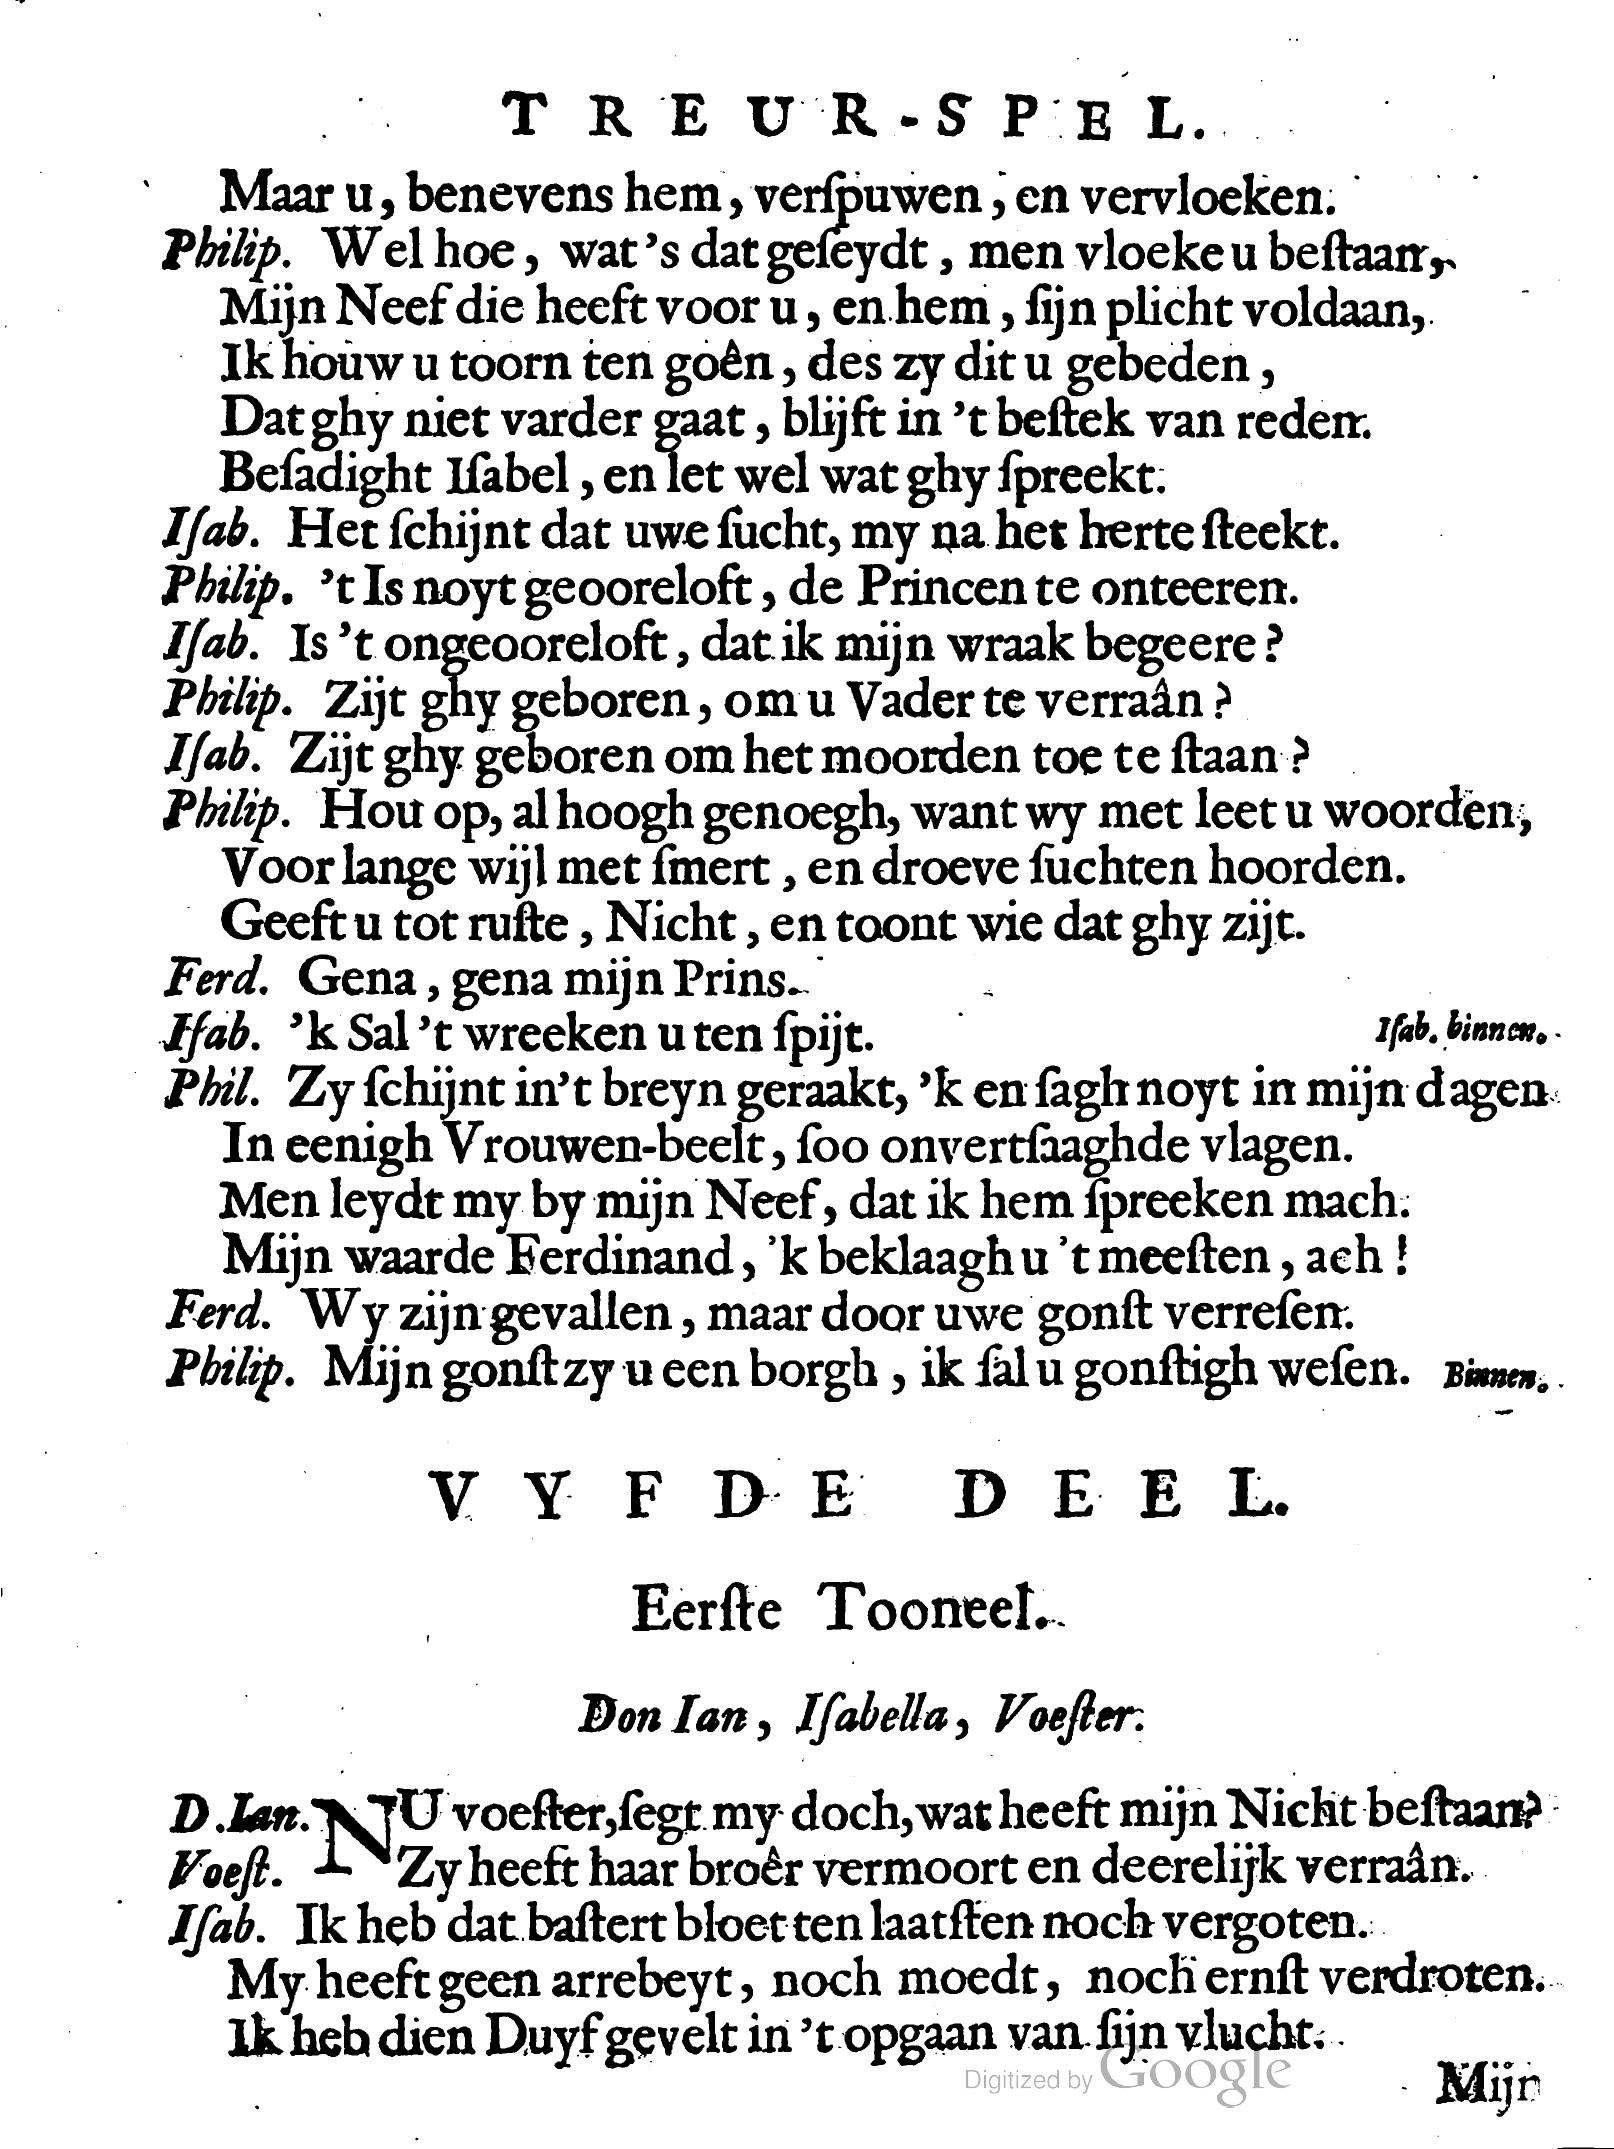 TREUR-SPEL.
Maar u, benevens hem, verſpuwen, en vervloeken.
Philip. Wel hoe, wat 's dat geſeydt, men vloeke u beſtaan,
Mijn Neef die heeft voor u, en hem, ſijn plicht voldaan,
Ik houw u toorn ten goên, des zy dit u gebeden,
Dat ghy niet varder gaat, blijft in 't beſtek van reden.
Beſadight Iſabel, en let wel wat ghy ſpreekt.
Iſab. Het ſchijnt dat uwe ſucht, my na het herte ſteekt.
Philip. 't Is noyt geooreloft, de Princen te onteeren.
Iſab. Is 't ongeooreloft, dat ik mijn wraak begeere?
Philip. Zijt ghy geboren, om u Vader te verraân?
Iſab. Zijt ghy geboren om het moorden toe te ſtaan?
Philip. Hou op, al hoogh genoegh, want wy met leet u woorden,
Voor lange wijl met ſmert, en droeve ſuchten hoorden.
Geeft u tot ruſte, Nicht, en toont wie dat ghy zijt.
Ferd. Gena, gena mijn Prins.
Iſab. 'k Sal 't wreeken u ten ſpijt. Iſab. binnen.
Phil. Zy ſchijnt in't breyn geraakt, 'k en ſagh noyt in mijn dagen
In eenigh Vrouwen-beelt, ſoo onvertſaaghde vlagen.
Men leydt my by mijn Neef, dat ik hem ſpreeken mach.
Mijn waarde Ferdinand, 'k beklaagh u 't meeſten, ach!
Ferd. Wy zijn gevallen, maar door uwe gonſt verreſen.
Philip. Mijn gonſt zy u een borgh, ik ſal u gonſtigh weſen. Binnen.
VYFDE DEEL.
Eerſte Tooneel.
Don Ian, Iſabella, Voeſter.
D. Ian. NU voeſter, ſegt my doch, wat heeft mijn Nicht beſtaan?
Voeſt. Zy heeft haar broêr vermoort en deerelijk verraân.
Iſab. Ik heb dat baſtert bloet ten laatſten noch vergoten.
My heeft geen arrebeyt, noch moedt, noch ernſt verdroten.
Ik heb dien Duyf gevelt in 't opgaan van ſijn vlucht.
Mijn
Digitized by Google